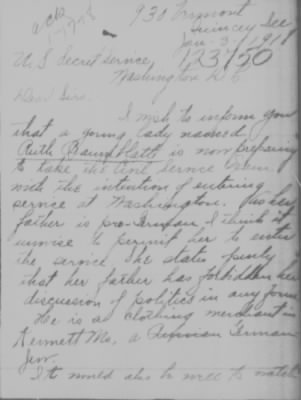 ack
1-7-18
930 Vermont
Quincy Ill
Jan-3-1918
123750
U S Secret Service
Washington D C
Dear Sirs:
I wish to inform you
that a young lady named
Ruth is now preparing
to take the Civil Service Exam.
with the intention of entering
service at Washington. As her
father is pro-German I think it
unwise to permit her to enter
the service. She states
that her father has forbidden her
discussion of politics in any form
He is a clothing merchant in
Kennett Mo. a German
Jew.
It would also be well to watch